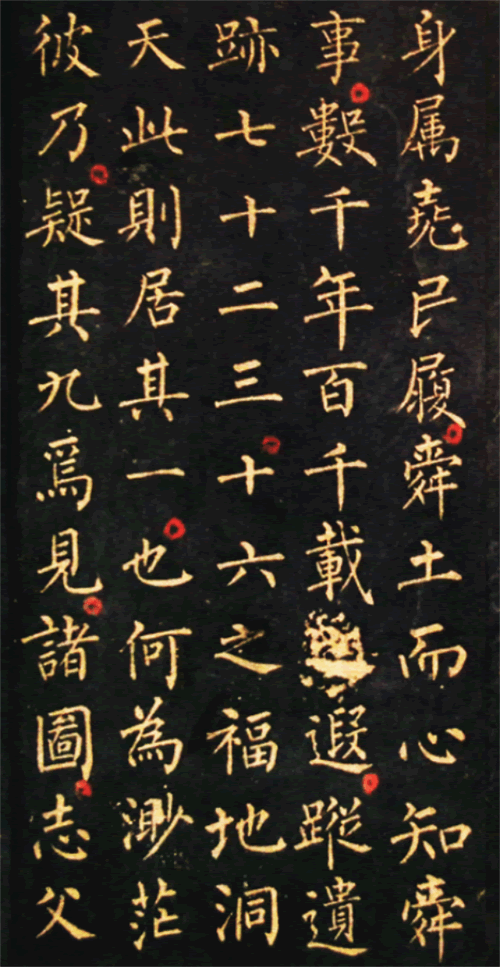 身属尭民履舜土而心知舜
事數千年百千載遐蹤遺
跡七十二三十六之福地洞
天此則居其一也何為渺茫
彼乃疑其九爲見諸圖志父